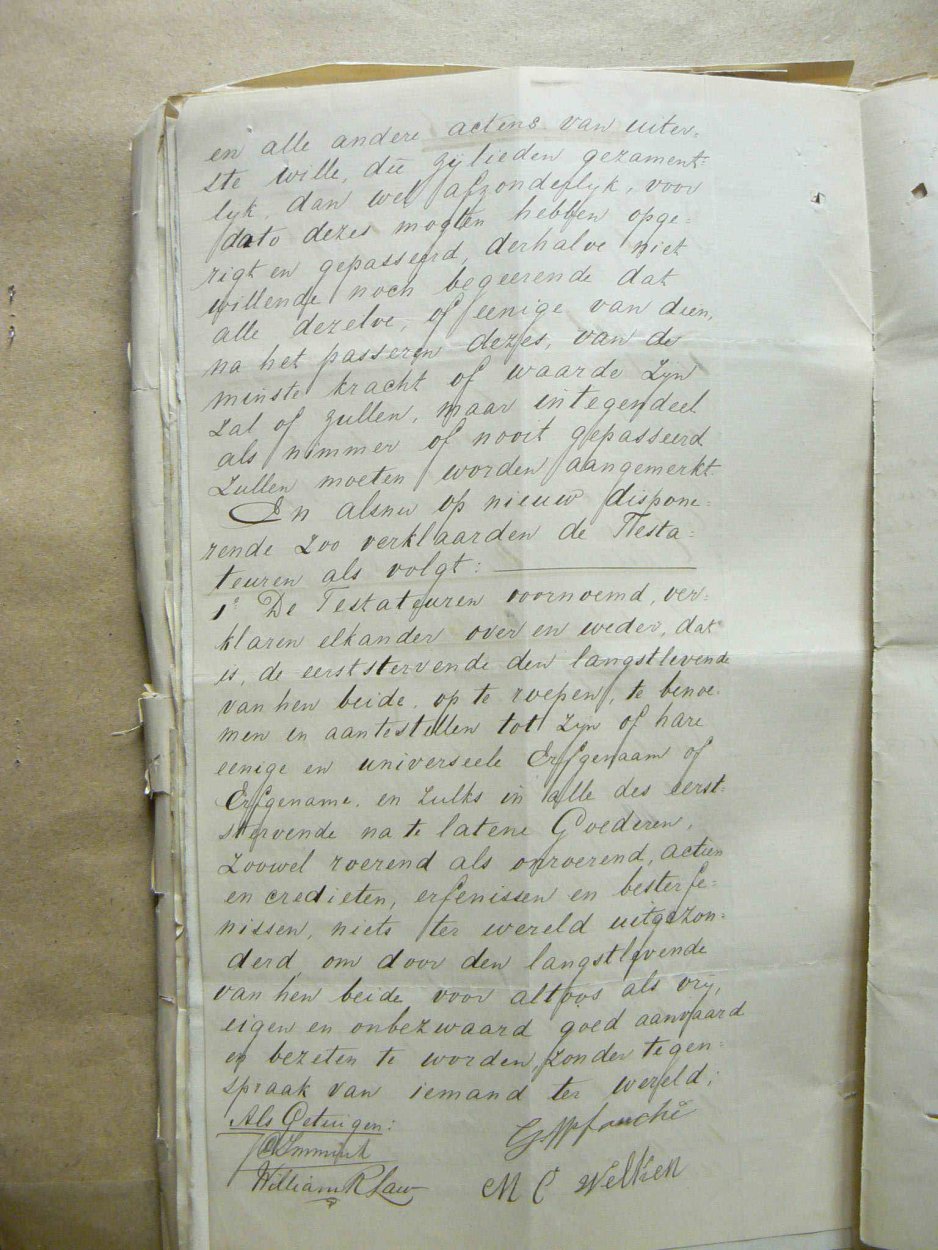 en alle andere actens van uiter-
ste wille, die zylieden gezament-
lyk, dan wel afzonderlyk, voor
dato dezes mogten hebben opge-
rigt en gepasseerd, derhalve niet
willende noch begeerende dat
alle dezelve, of eenige van dien,
na het passeren dezes, van de
minste kracht of waarde zyn
zal of zullen, maar integendeel
als nimmer of nooit gepasseerd
zullen moeten worden aangemerkt
En alsnu op nieuw dispone-
rende zoo verklaarden de Testa-
teuren als volgt:
1° De Testateuren voornoemd, ver-
klaren elkander over en weder, dat
is, de eerststervende den langstlevende
van hen beide, op te roepen, te benoe-
men en aantestellen tot zyn of hare
eenige en universeele Erfgenaam of
Erfgename, en zulks in alle des eerst-
stervende na te latene Goederen,
zoowel roerend als onroerend, actien
en credieten, erfenissen en besterfe-
nissen, niets ter wereld uitgezon-
derd, om door den langstlevende
van hen beide voor altoos als vrij,
eigen en onbezwaard goed aanvaard
en bezeten te worden, zonder tegen-
spraak van iemand ter wereld;
Als Getuigen:
William R Law
M C Welken